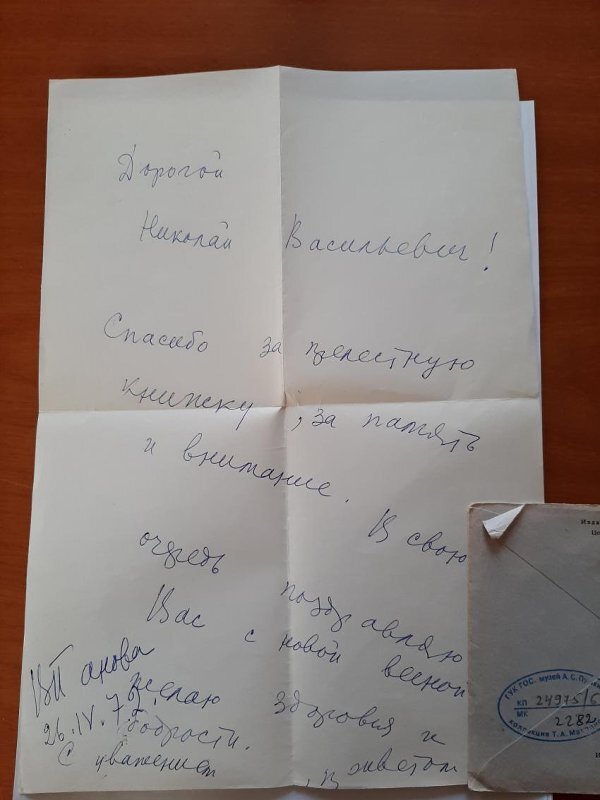 Дорогой
Николай Васильевич!
Спасибо за прелестную
книжку, за память
и внимание.
В свою
очередь поздравляю
Вас с новой весной
желаю здоровья и
бодрости.
С уважением, приветом
ВПанова
26.IV.72.
Изда
Це
ГУК ГОС. музей А.С.Пу
КП 24975/6
МК 2282
коллекция Т.А. Ма